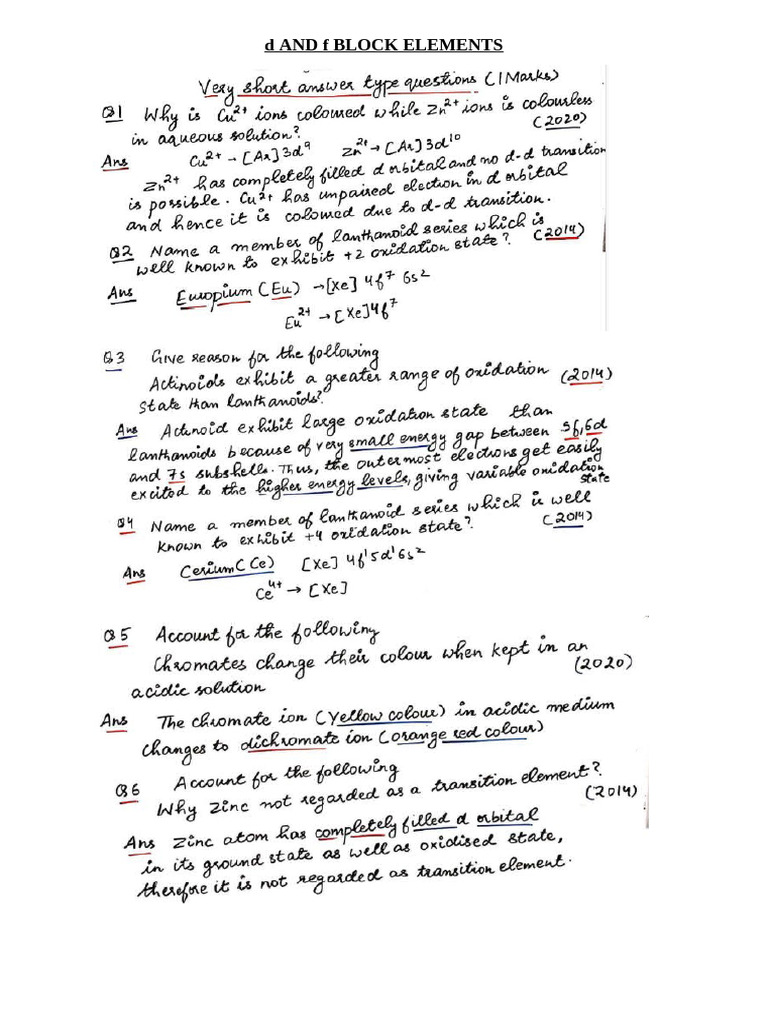 d AND f BLOCK ELEMENTS
Very short answer type questions (1Marks)
Q1 Why is Cu²⁺ ions coloured while Zn²⁺ ions is colourless
in aqueous solution? (2020)
Ans Cu²⁺ → [Ar]3d⁹ Zn²⁺ → [Ar]3d¹⁰
Zn²⁺ has completely filled d orbital and no d-d transition
is possible. Cu²⁺ has unpaired electron in d orbital
and hence it is coloured due to d-d transition.
Q2 Name a member of lanthanoid series which is
well known to exhibit +2 oxidation state? (2014)
Ans Europium (Eu) → [Xe] 4f⁷ 6s²
Eu²⁺ → [Xe]4f⁷
Q3 Give reason for the following
Actinoids exhibit a greater range of oxidation (2014)
state than lanthanoids?
Ans Actinoid exhibit large oxidation state than
lanthanoids because of very small energy gap between 5f, 6d
and 7s subshells. Thus, the outermost electrons get easily
excited to the higher energy levels, giving variable oxidation
state
Q4 Name a member of lanthanoid series which is well
known to exhibit +4 oxidation state? (2014)
Ans Cerium (Ce) [Xe] 4f¹5d¹6s²
Ce⁴⁺ → [Xe]
Q5 Account for the following
Chromates change their colour when kept in an
acidic solution (2020)
Ans The chromate ion (Yellow colour) in acidic medium
changes to dichromate ion (orange red colour)
Q6 Account for the following
Why zinc not regarded as a transition element? (2014)
Ans Zinc atom has completely filled d orbital
in its ground state as well as oxidised state,
therefore it is not regarded as transition element.